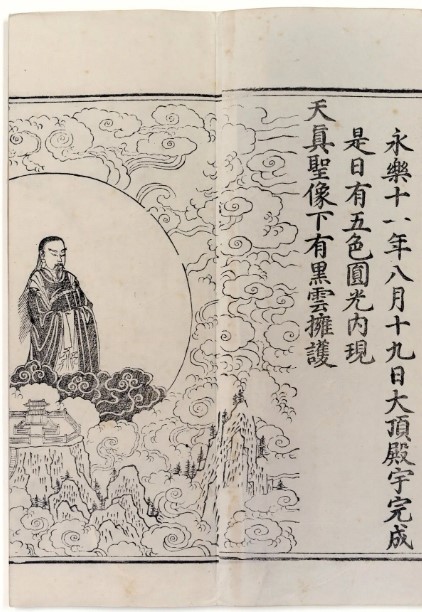 永樂十一年八月十九日大頂殿宇完成
是日有五色圓光內現
天真聖像下有黑雲擁護